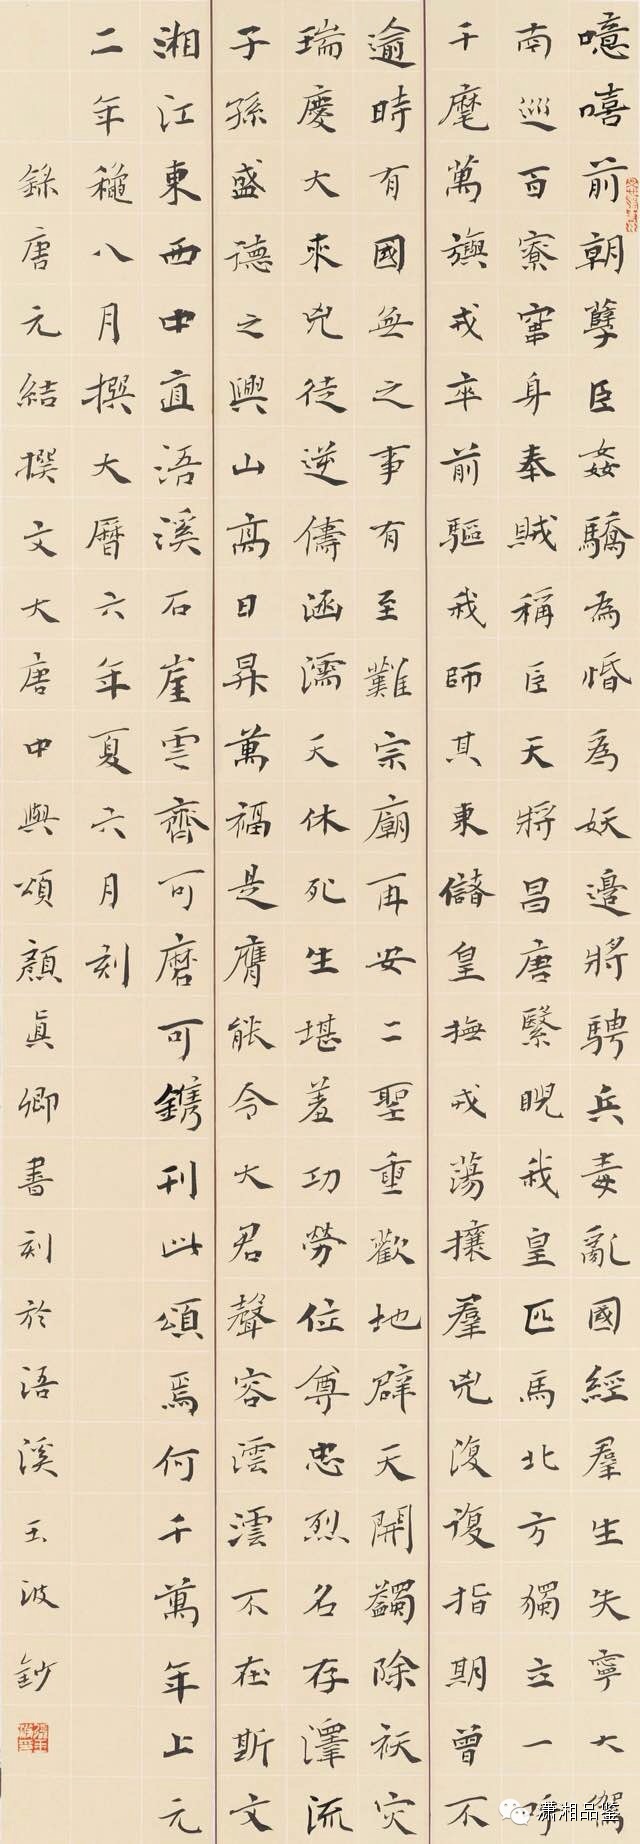 噫嘻前朝孽臣姦驕為惛為妖邊將騁兵毒亂國經羣生失寧大駕
南巡百寮竄身奉賊稱臣天將昌唐繄睨我皇匹馬北方獨立一呼
千麾萬旟戎卒前驅我師其東儲皇撫戎蕩攘羣兇復復指期曾不
逾時有國無之事有至難宗廟再安二聖重歡地辟天開蠲除祅灾
瑞慶大來兇徒逆儔涵濡天休死生堪羞功勞位尊忠烈名存澤流
子孫盛德之興山高日昇萬福是膺能令大君聲容澐澐不在斯文
湘江東西中直浯溪石崖雲齊可磨可鐫刊此頌焉何千萬年上元
二年穐八月撰大曆六年夏六月刻
錄唐元結撰文大唐中興頌顏真卿書刻於浯溪玉波鈔
潇湘品鉴